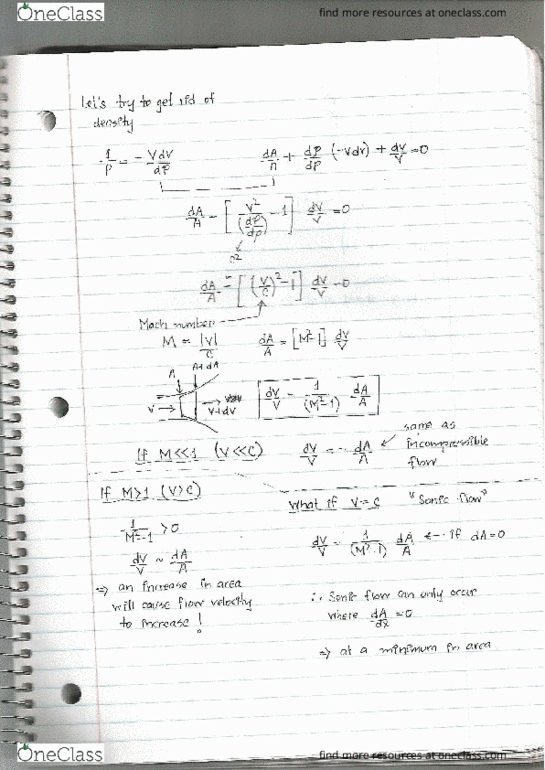 OneClass
find more resources at oneclass.com
Let's try to get rid of
density
1/ρ = - VdV/dP
dA/A + dρ/dP (-VdV) + dV/V = 0
dA/A - [ V²/(dP/dρ) - 1 ] dV/V = 0
c²
dA/A - [ (V/C)² - 1 ] dV/V = 0
Mach number
M = |V|/C
dA/A = [M²-1] dV/V
A
A+dA
V
V+dV
dV/V = 1/(M²-1) dA/A
If M<<1 (V<<C)
dV/V = - dA/A
same as
incompressible
flow
If M>1 (V>C)
1/M²-1 >0
dV/V ~ dA/A
⇒ an increase in area
will cause flow velocity
to increase!
What if V=C "Sonic flow"
dV/V = 1/(M²-1) dA/A ← if dA=0
∴ Sonic flow can only occur
where dA/dx = 0
⇒ at a minimum in area
OneClass
find more resources at oneclass.com